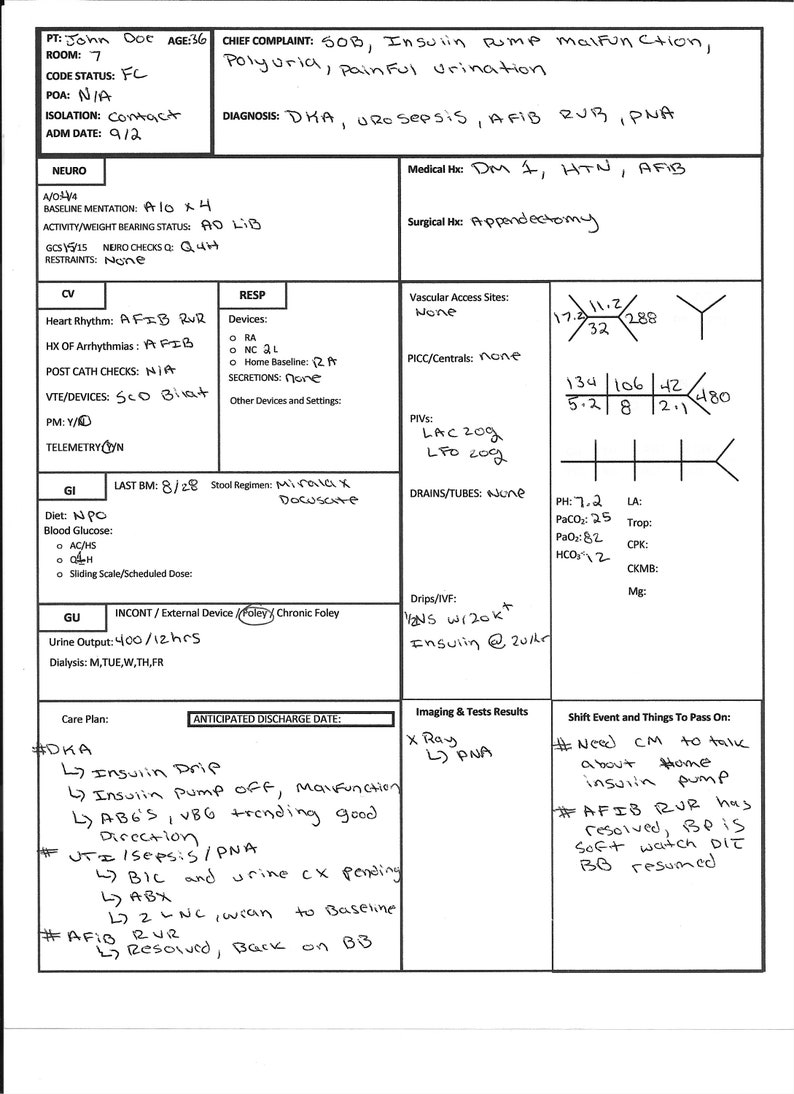 PT: John Doe AGE: 36
ROOM: 7
CODE STATUS: FC
POA: N/A
ISOLATION: Contact
ADM DATE: 9/2
CHIEF COMPLAINT: SOB, Insulin pump malfunction,
Polyuria, painful urination
DIAGNOSIS: DKA, urosepsis, AFiB RVR, PNA
NEURO
A/O: 4/4
BASELINE MENTATION: A/O x 4
ACTIVITY/WEIGHT BEARING STATUS: AD LiB
GCS 15/15 NEURO CHECKS Q: Q4H
RESTRAINTS: None
Medical Hx: DM 1, HTN, AFiB
Surgical Hx: Appendectomy
CV
Heart Rhythm: AFIB RVR
HX OF Arrhythmias: AFIB
POST CATH CHECKS: N/A
VTE/DEVICES: SCD Bilat
PM: Y/N
TELEMETRY Y/N
RESP
Devices:
o RA
o NC 2L
o Home Baseline: RA
SECRETIONS: none
Other Devices and Settings:
GI
LAST BM: 8/28 Stool Regimen: Miralax
Docusate
Diet: NPO
Blood Glucose:
o AC/HS
o Q4H
o Sliding Scale/Scheduled Dose:
GU
INCONT / External Device / Foley / Chronic Foley
Urine Output: 400/12hrs
Dialysis: M,TUE,W,TH,FR
Vascular Access Sites:
None
PICC/Centrals: none
PIVs:
LAC 20g
LFO 20g
DRAINS/TUBES: None
Drips/IVF:
1/2NS w/20K+
Insulin @ 2u/hr
17.2 11.2 288
32
134 106 42 480
5.2 8 2.1
PH: 7.2 LA:
PaCO2: 25 Trop:
PaO2: 82 CPK:
HCO3: 12 CKMB:
Mg:
Care Plan: ANTICIPATED DISCHARGE DATE:
#DKA
↳ Insulin Drip
↳ Insulin pump off, Malfunction
↳ ABG'S, VBG trending good
Direction
# UTI/Sepsis/PNA
↳ B/C and urine CX pending
↳ ABX
↳ 2 L NC, wean to Baseline
# AFiB RVR
↳ Resolved, Back on BB
Imaging & Tests Results
X Ray
↳ PNA
Shift Event and Things To Pass On:
# Need CM to talk
about Home
insulin pump
# AFIB RVR has
resolved, BP is
soft watch DIT
BB resumed